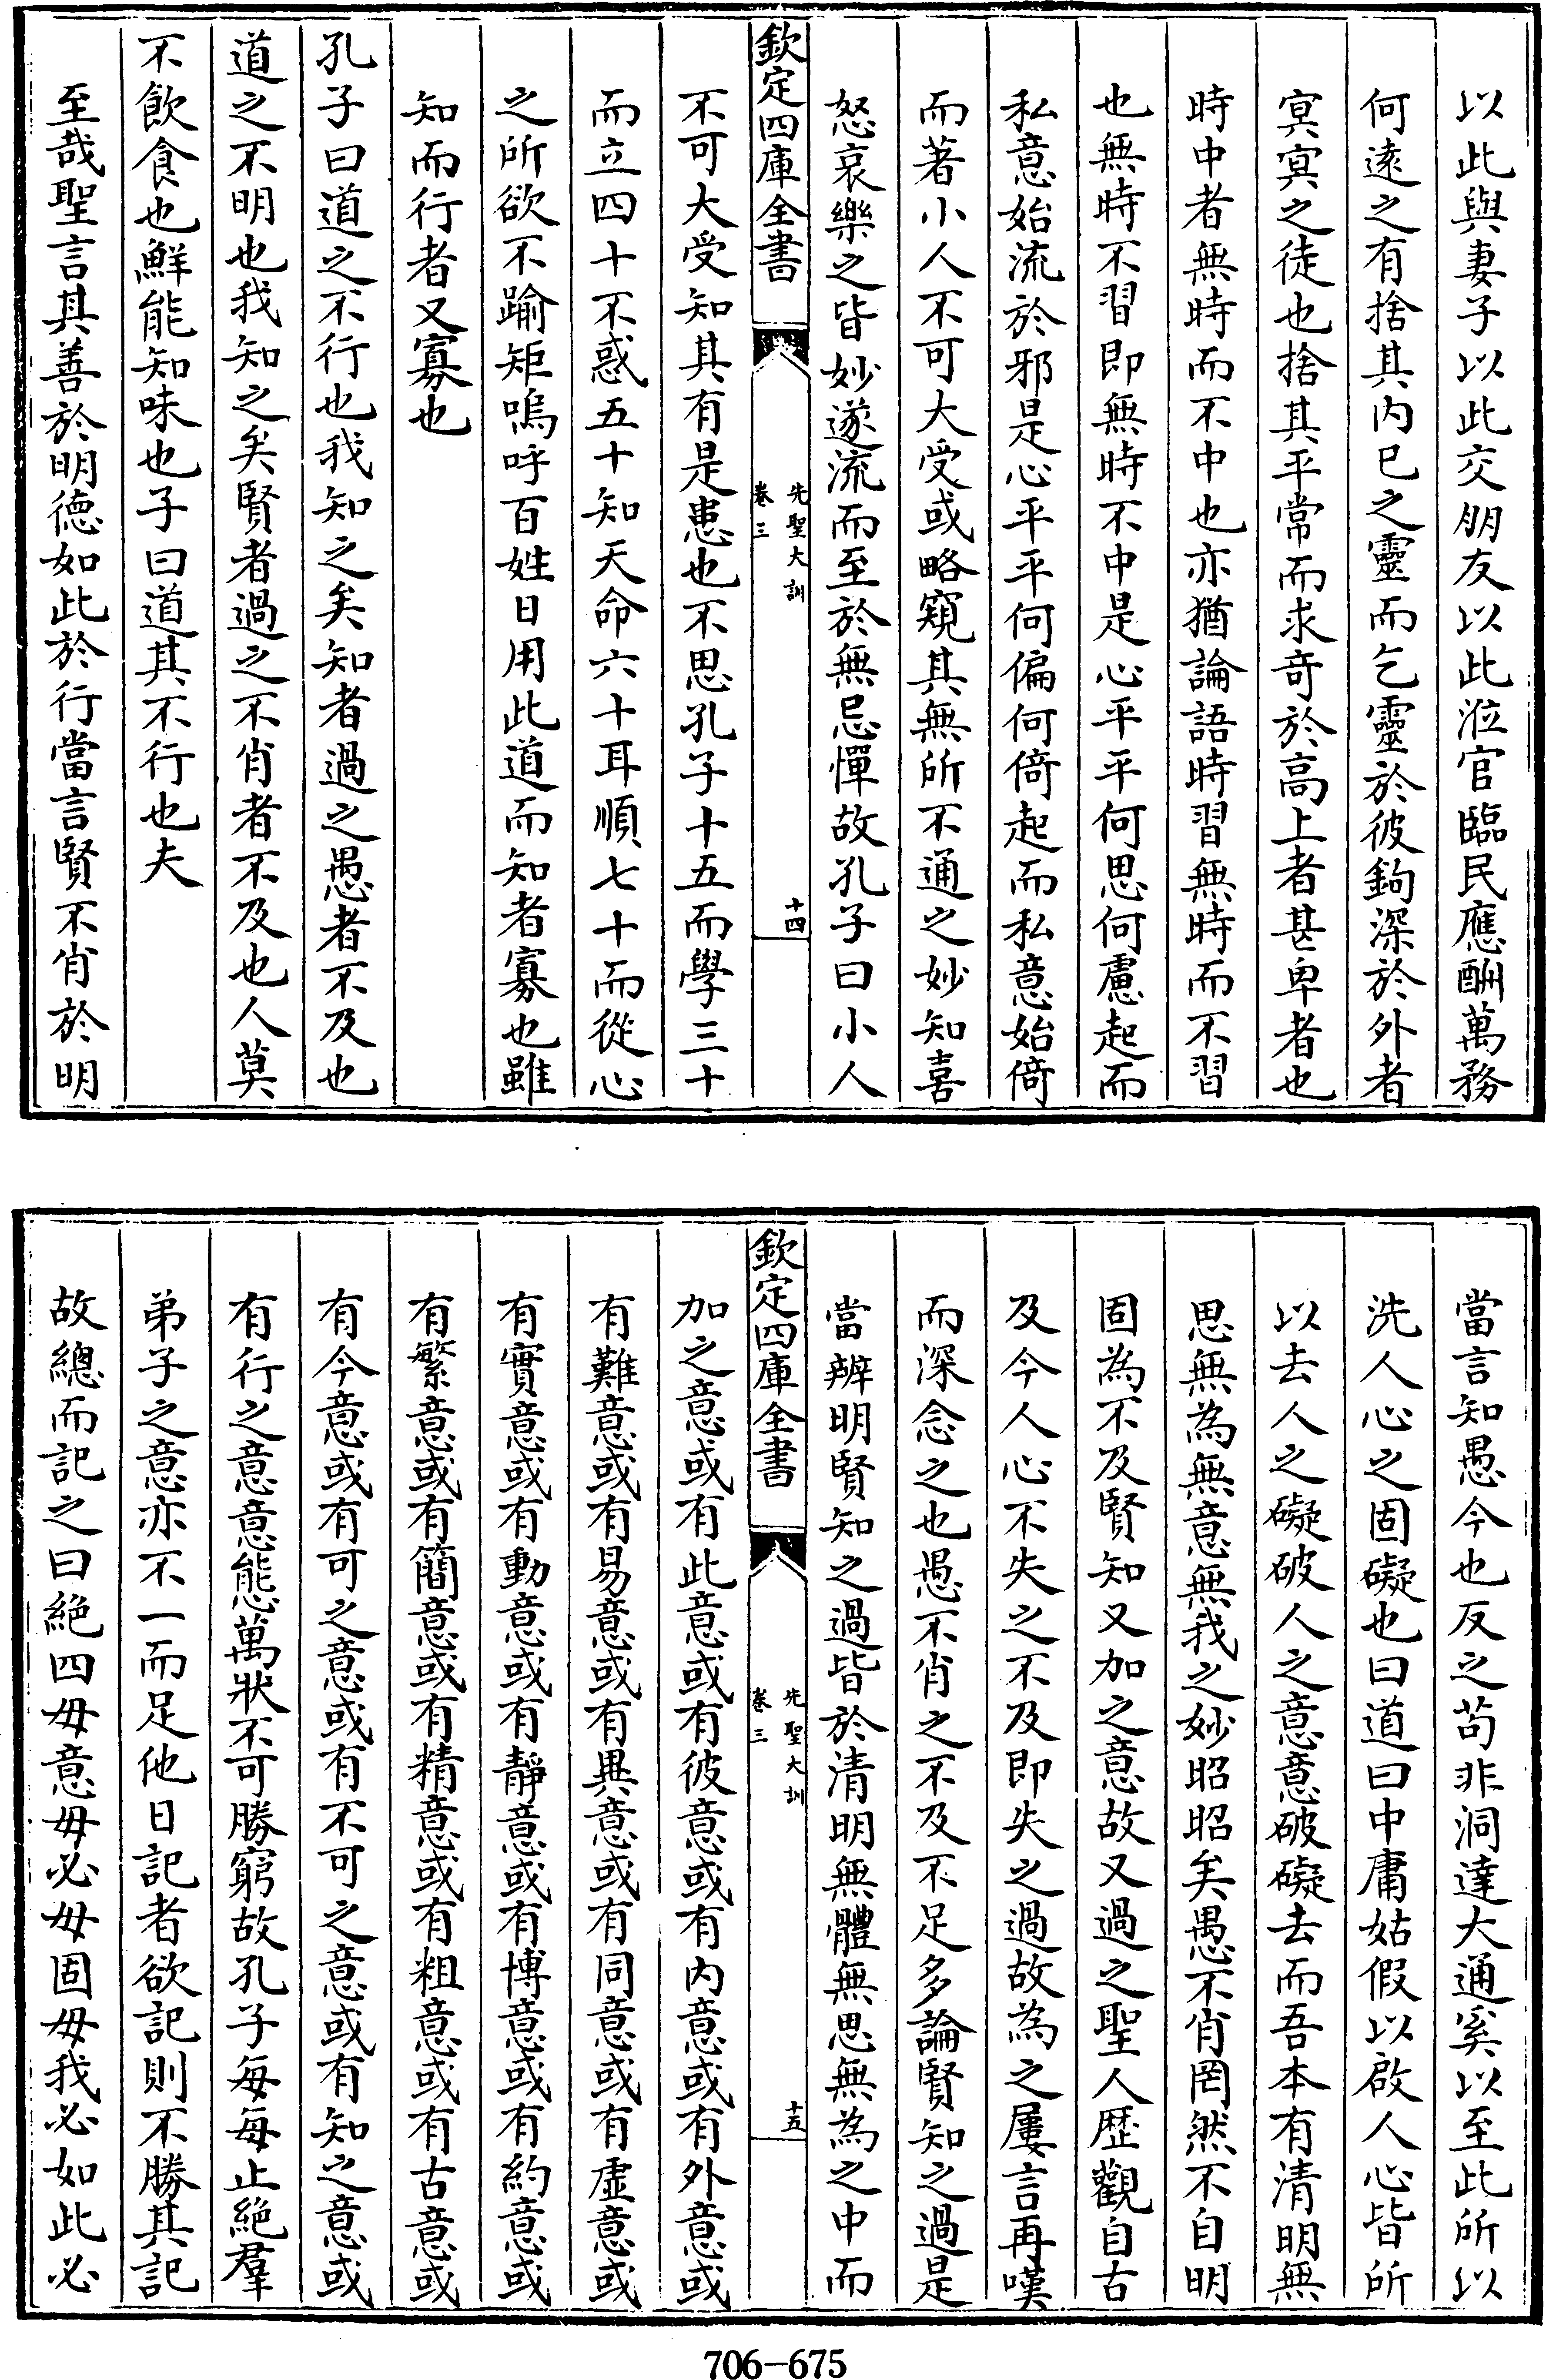 以此與妻子以此交朋友以此涖官臨民應酬萬務
何遠之有捨其内已之靈而乞靈於彼鉤深於外者
冥冥之徒也捨其平常而求竒於高上者甚卑者也
時中者無時而不中也亦猶論語時習無時而不習
也無時不習即無時不中是心平平何思何慮起而
私意始流於邪是心平平何偏何倚起而私意始倚
而著小人不可大受或略窺其無所不通之妙知喜
怒哀樂之皆妙遂流而至於無忌憚故孔子曰小人
欽定四庫全書
先聖大訓
卷三
十四
不可大受知其有是患也不思孔子十五而學三十
而立四十不惑五十知天命六十耳順七十而從心
之所欲不踰矩嗚呼百姓日用此道而知者寡也雖
知而行者又寡也
孔子曰道之不行也我知之矣知者過之愚者不及也
道之不明也我知之矣賢者過之不肖者不及也人莫
不飲食也鮮能知味也子曰道其不行也夫
至哉聖言其善於明德如此於行當言賢不肖於明
當言知愚今也反之苟非洞達大通奚以至此所以
洗人心之固礙也曰道曰中庸姑假以啟人心皆所
以去人之礙破人之意意破礙去而吾本有清明無
思無為無意無我之妙昭昭矣愚不肖罔然不自明
固為不及賢知又加之意故又過之聖人歴觀自古
及今人心不失之不及即失之過故為之屢言再嘆
而深念之也愚不肖之不及不足多論賢知之過是
當辨明賢知之過皆於清明無體無思無為之中而
欽定四庫全書
先聖大訓
卷三
十五
加之意或有此意或有彼意或有内意或有外意或
有難意或有易意或有異意或有同意或有虛意或
有實意或有動意或有靜意或有博意或有約意或
有繁意或有簡意或有精意或有粗意或有古意或
有今意或有可之意或有不可之意或有知之意或
有行之意意態萬狀不可勝窮故孔子每每止絶羣
弟子之意亦不一而足他日記者欲記則不勝其記
故總而記之曰絶四毋意毋必毋固毋我必如此必
706-675